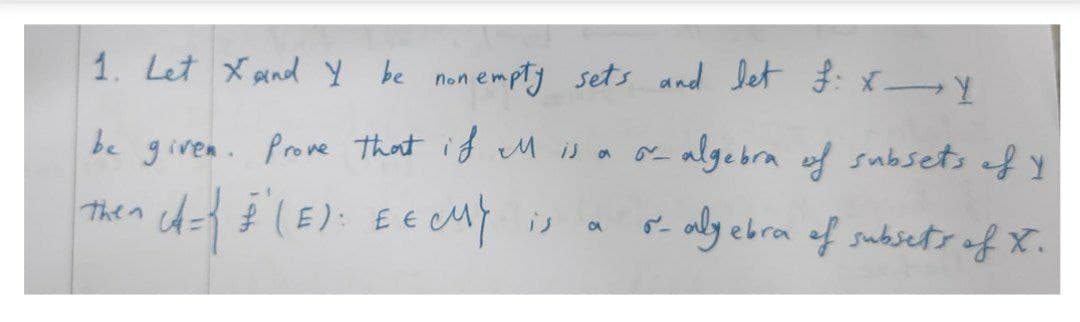 1. Let X and Y be nonempty sets and let f: X → Y
be given. Prove that if M is a σ- algebra of subsets of Y
Then A={ f⁻¹(E): E ∈ M} is a σ- algebra of subsets of X.